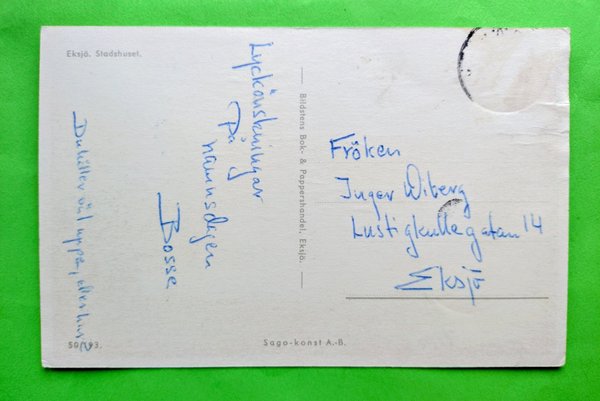 Eksjö. Stadshuset.
Lyckönskningar
På
namnsdagen
Bosse
Du håller väl uppn, eller hur?
Bildstens Bok- & Pappershandel, Eksjö.
Fröken
Inger Wiberg
Lustigkullegatan 14
Eksjö
50/193.
Sago-konst A.-B.